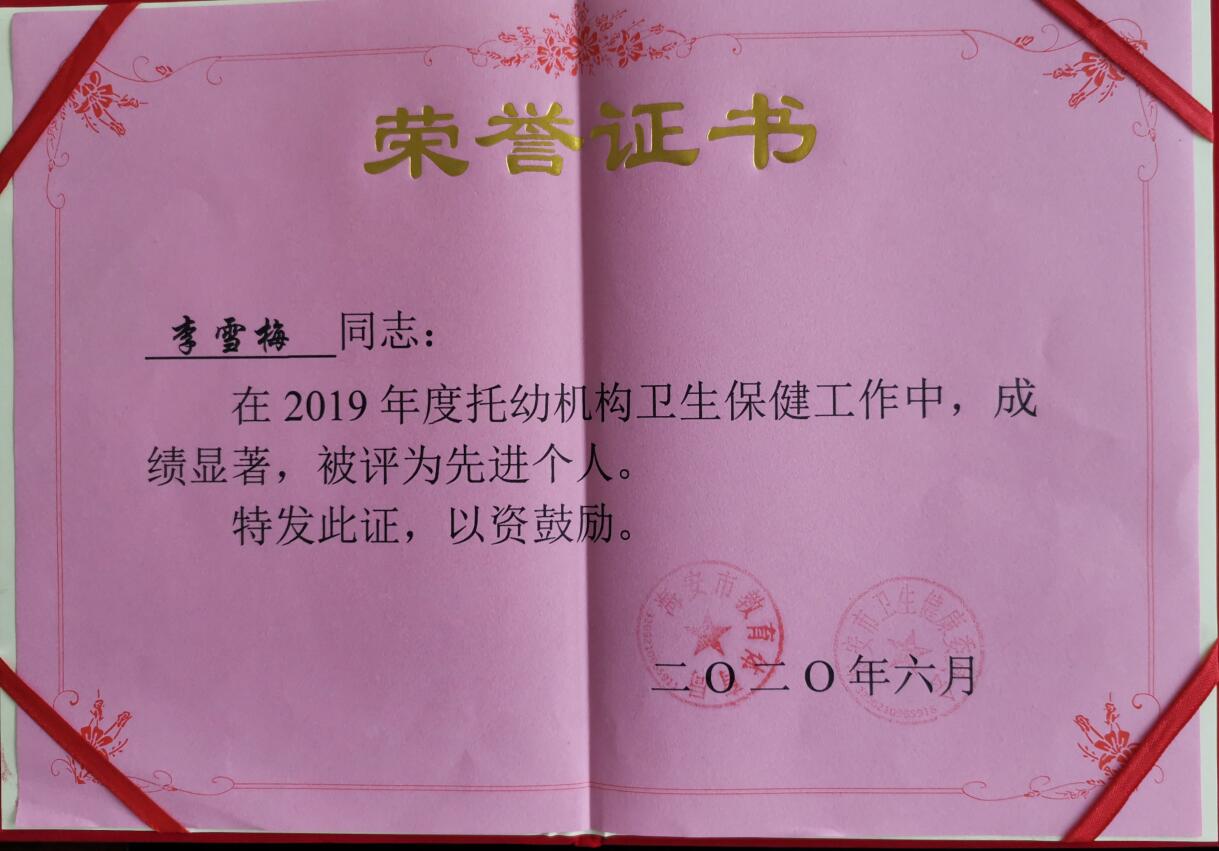 荣誉证书
李雪梅 同志：
在 2019 年度托幼机构卫生保健工作中，成
绩显著，被评为先进个人。
特发此证，以资鼓励。
海安市教育体育局
安市卫生健康委
二〇二〇年六月